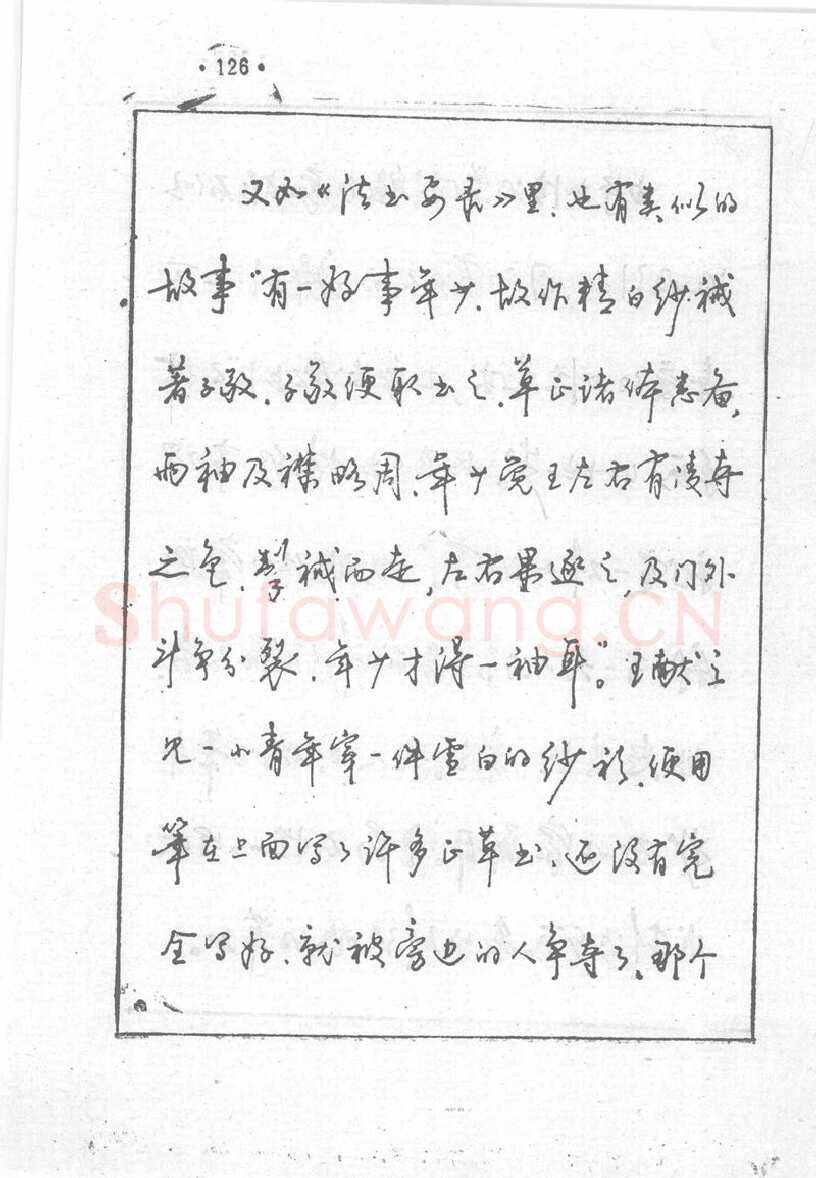 ·126·
又如《法书要录》里，也有类似的
故事“有一好事年少，故作精白纱裓
著子敬，子敬便取书之，草正诸体悉备，
两袖及襟略周，年少觉王左右有凌夺
之色，掣裓而走，左右果逐之，及门外
斗争分裂，年少才得一袖耳”。王献之
见一小青年穿一件雪白的纱衫，便用
笔在上面写了许多正草书，还没有完
全写好，就被旁边的人争夺了，那个
Shufawang.CN